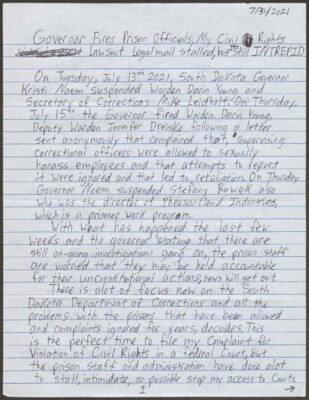 7/31/2021
Governor Fires Prison Officials, My Civil Rights
Lawsuit Legalmail stalled, but Still INTREPID.
On Tuesday, July 13th 2021, South Dakota Governor
Kristi Noem suspended Warden Darin Young and
Secretary of Corrections Mike Leidholt. On Thursday,
July 15th the Governor fired Warden Darin Young,
Deputy Warden Jennifer Dreiske following a letter
sent anonymously that complained that, "supervising
correctional officers were allowed to sexually
harass employees and that attempts to report
it were ignored and that led to retaliation. On Thursday
Governor Noem suspended Stefany Bawek also
who was the director of Pheasantland Industries,
which is a prisoner work program.
With what has happened the last few
weeks and the governor stating that there are
still on-going investigations going on, the prison staff
are worried that they may be held accountable
for their unconstitutional actions, news will get out.
There is alot of focus now on the South
Dakota Department of Corrections and all the
problems with the prisons that have been allowed
and complaints ignored for years, decades. This
is the perfect time to file my Complaint for
Violation of Civil Rights in a federal Court, but
the prison staff and administration have done alot
to stall, intimidate, or possible stop my access to Courts.
1